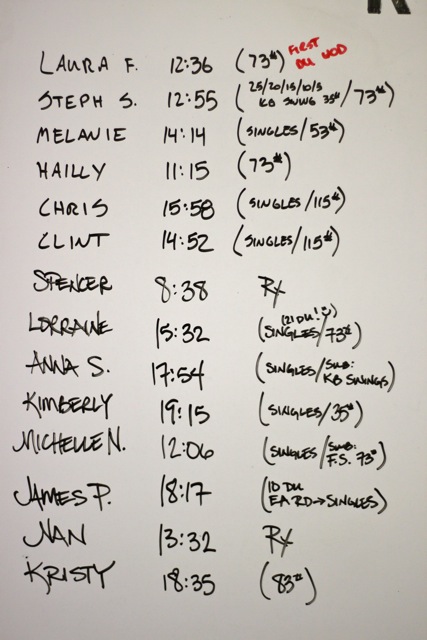 LAURA F. 12:36 (73#) FIRST DU WOD
STEPH S. 12:55 (25/20/15/10/5 KB SWING 35#/73#)
MELANIE 14:14 (SINGLES/53#)
HAILLY 11:15 (73#)
CHRIS 15:58 (SINGLES/115#)
CLINT 14:52 (SINGLES/115#)
SPENCER 8:38 Rx
LORRAINE 15:32 (SINGLES/73#) (21 DU! :))
ANNA S. 17:54 (SINGLES/SUB: KB SWINGS)
KIMBERLY 19:15 (SINGLES/35#)
MICHELLE N. 12:06 (SINGLES/SUB: F.S. 73#)
JAMES P. 18:17 (10 DU EA. RD→SINGLES)
NAN 13:32 Rx
KRISTY 18:35 (83#)